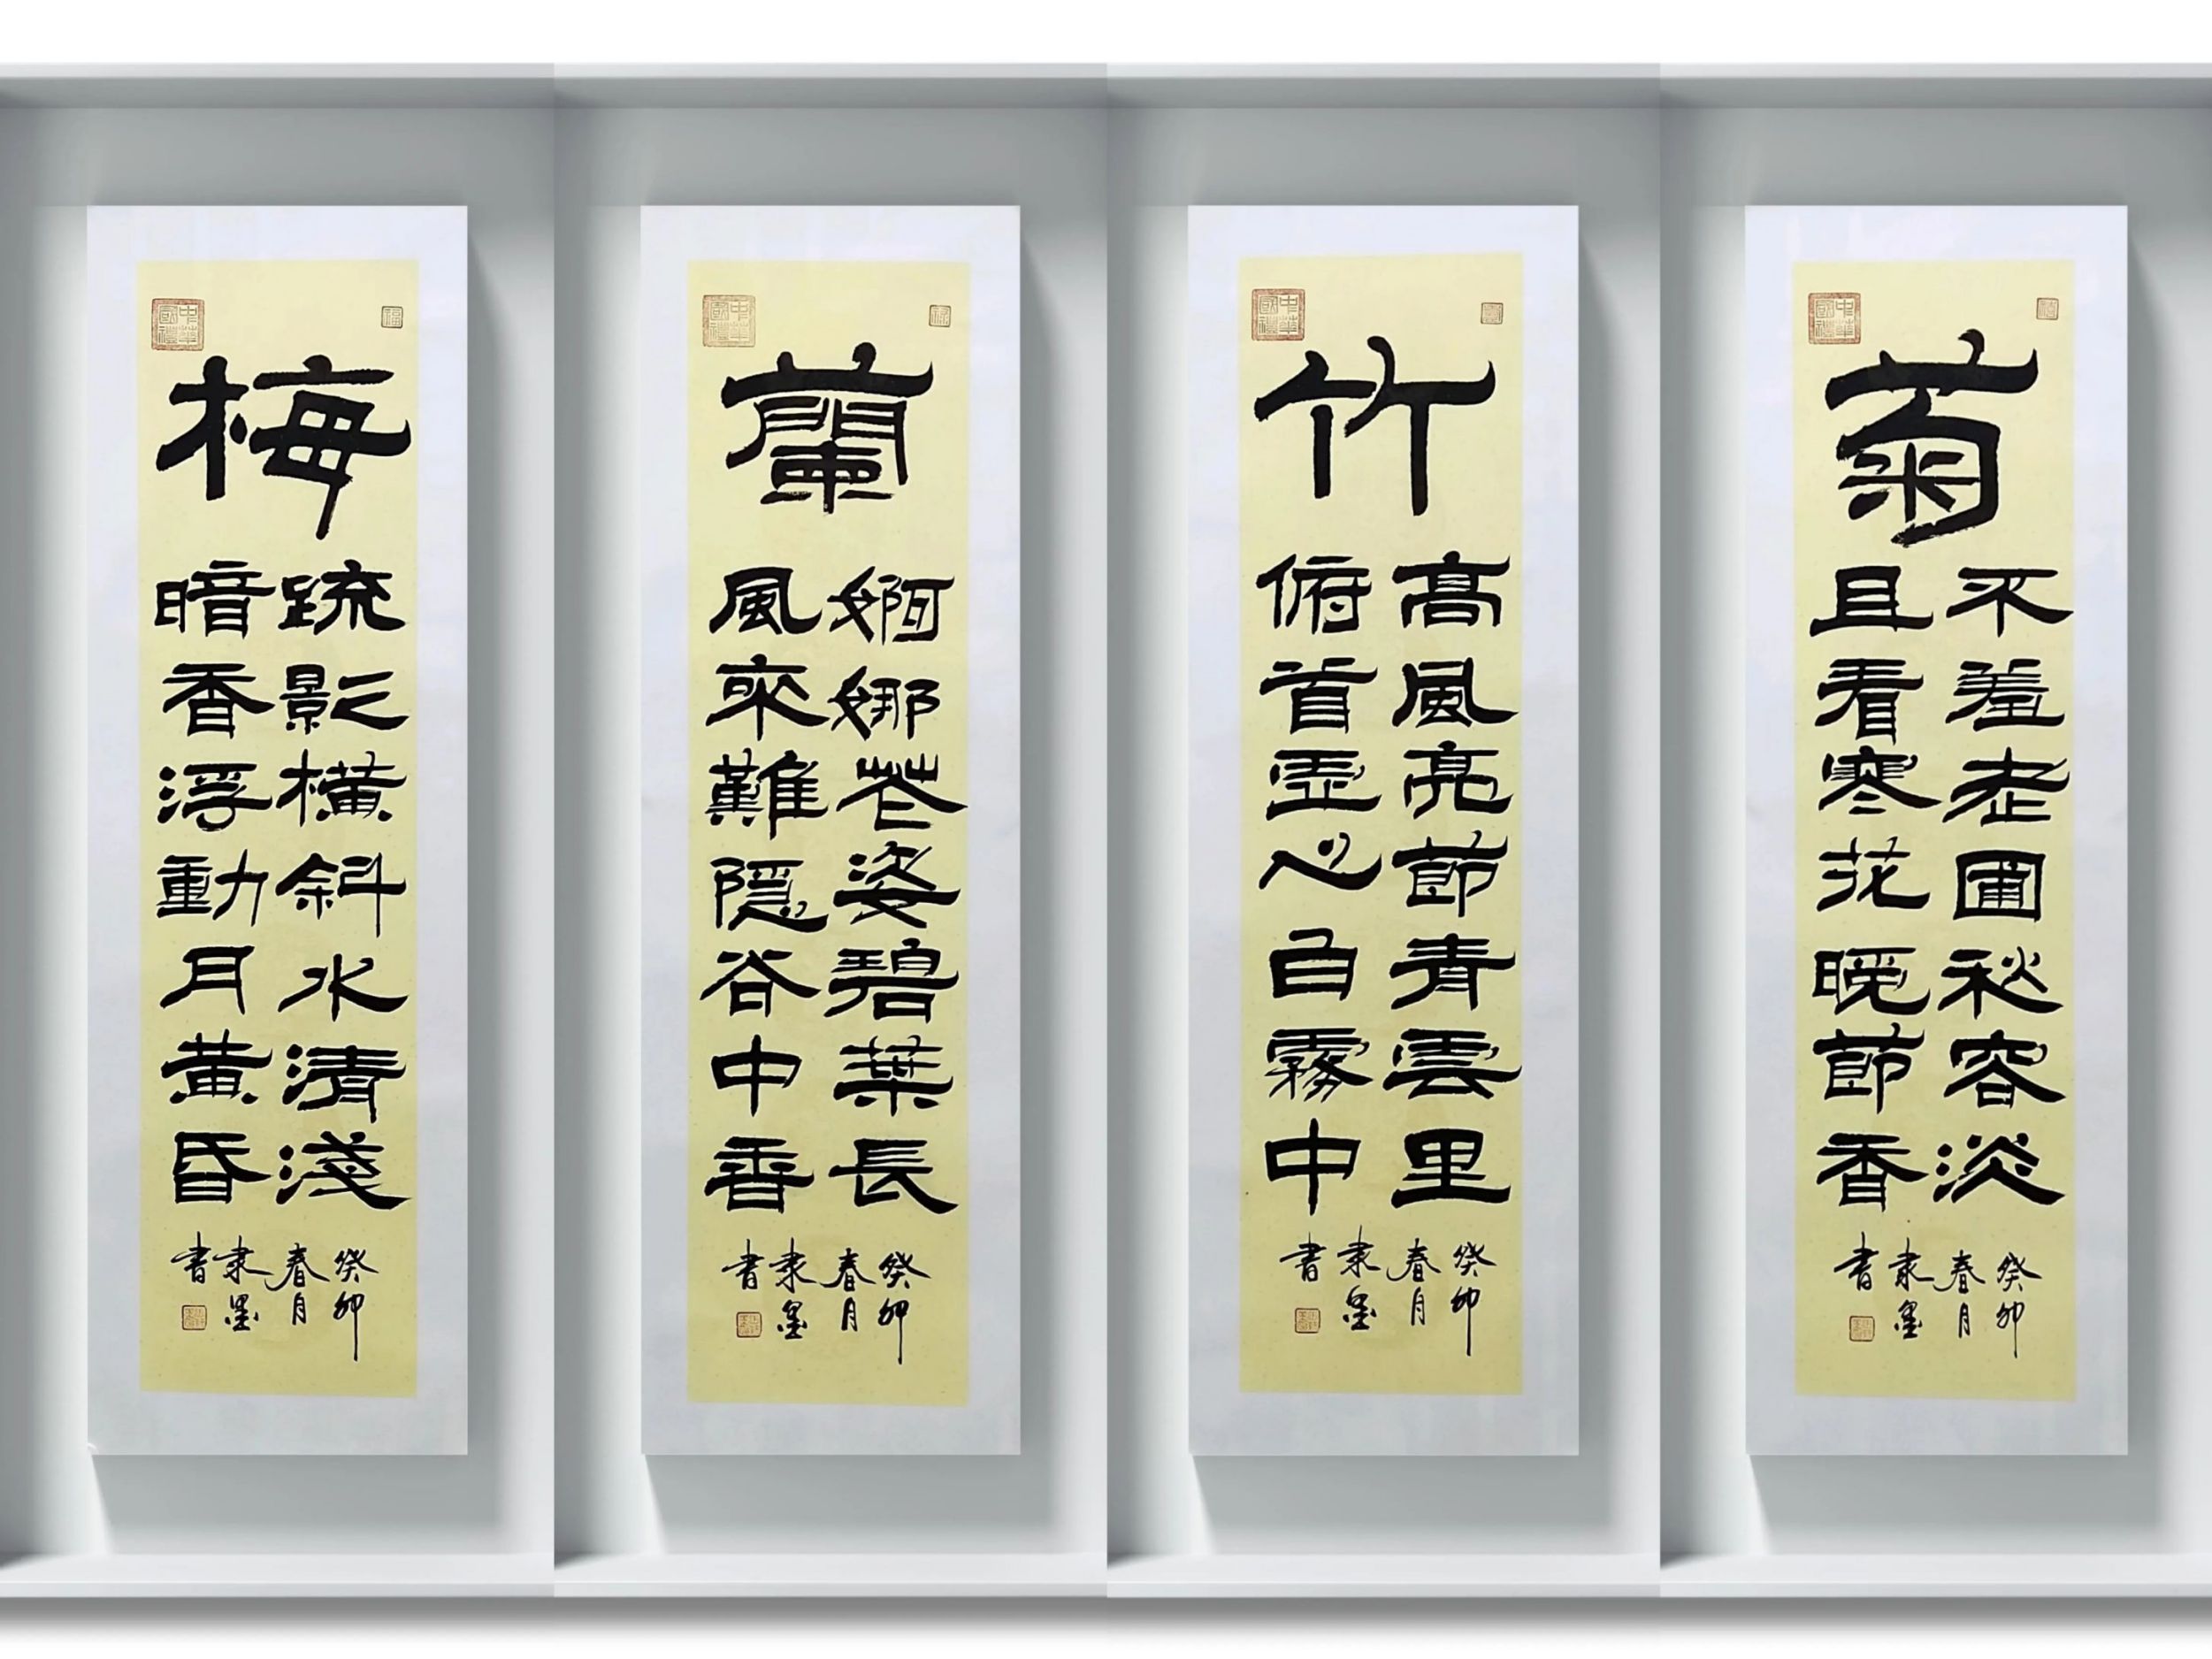 中華
國禮
福
梅
疏影橫斜水清淺
暗香浮動月黃昏
癸卯
春月
隶墨
書
中華
國禮
蘭
婀娜花姿碧葉長
風來難隱谷中香
癸卯
春月
隶墨
書
中華
國禮
竹
高風亮節青雲里
俯首虛心白霧中
癸卯
春月
隶墨
書
中華
國禮
菊
不羞老圃秋容淡
且看寒花晚節香
癸卯
春月
隶墨
書